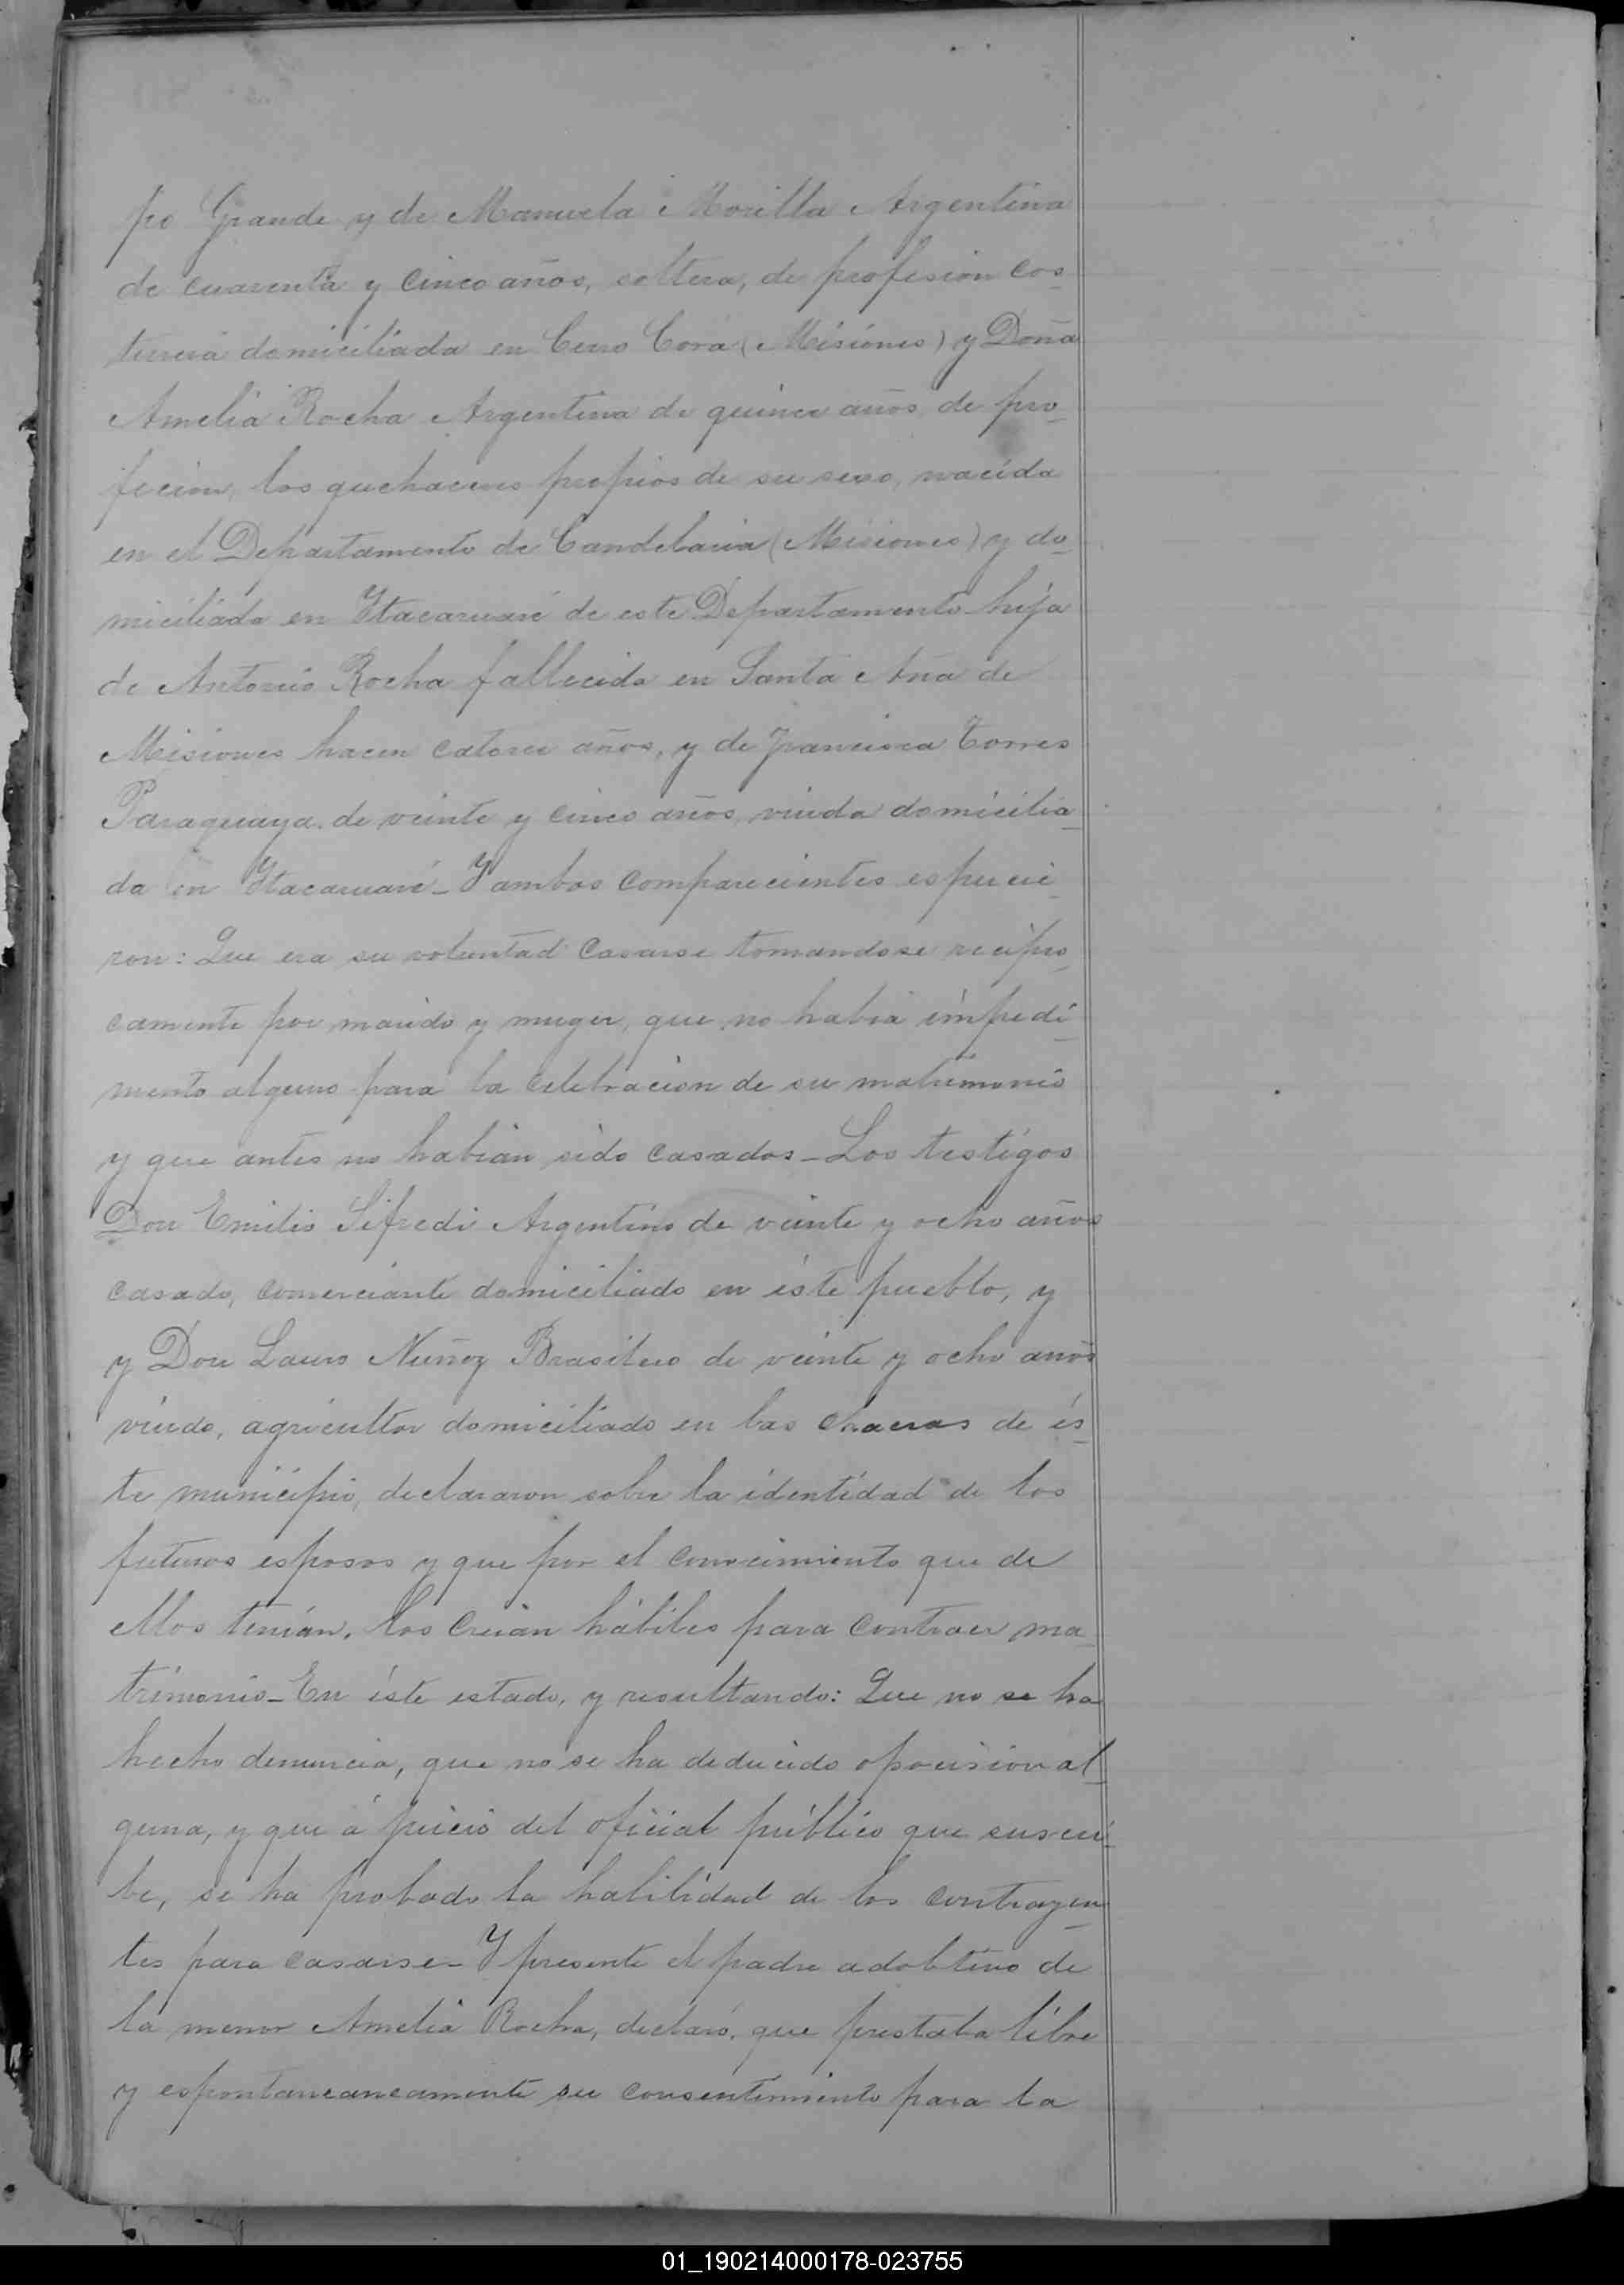 po Grande y de Manuela Morilla Argentina
de cuarenta y cinco años, soltera, de profesion cos-
turera domiciliada en Cerro Cora (Misiones) y Doña
Amelia Rocha Argentina de quince años, de pro-
fecion, los quehaceres propios de su sexo, nacida
en el Departamento de Candelaria (Misiones) y do-
miciliada en Itacaruaré de este Departamento hija
de Antonio Rocha fallecido en Santa Ana de
Misiones hacen catorce años, y de Francisca Torres
Paraguaya. de veinte y cinco años, viuda domicilia-
da en Itacaruaré - Y ambos comparecientes espucie-
ron: Que era su voluntad casarse tomandose recipro-
camente por marido y muger, que no habia impedi-
mento alguno para la celebracion de su matrimonio
y que antes no habian sido casados - Los testigos
Don Emilio Sifredi Argentino de veinte y ocho años
casado, comerciante domiciliado en éste pueblo, y
y Don Lauro Nuñez Brasilero de veinte y ocho años
viudo, agricultor domiciliado en las chacras de és-
te municipio, declararon sobre la identidad de los
futuros esposos y que por el conocimiento que de
ellos tenían, los creían hábiles para contraer ma-
trimonio - En éste estado, y resultando: Que no se ha
hecho denuncia, que no se ha deducido oposision al-
guna, y que á juicio del oficial público que suscri-
be, se ha probado la habilidad de los contrayen-
tes para casarse - Y presente el padre adobtivo de
la menor Amelia Rocha, declaró, que prestaba libre
y espontaneaneamente su consentimiento para la
01_190214000178-023755